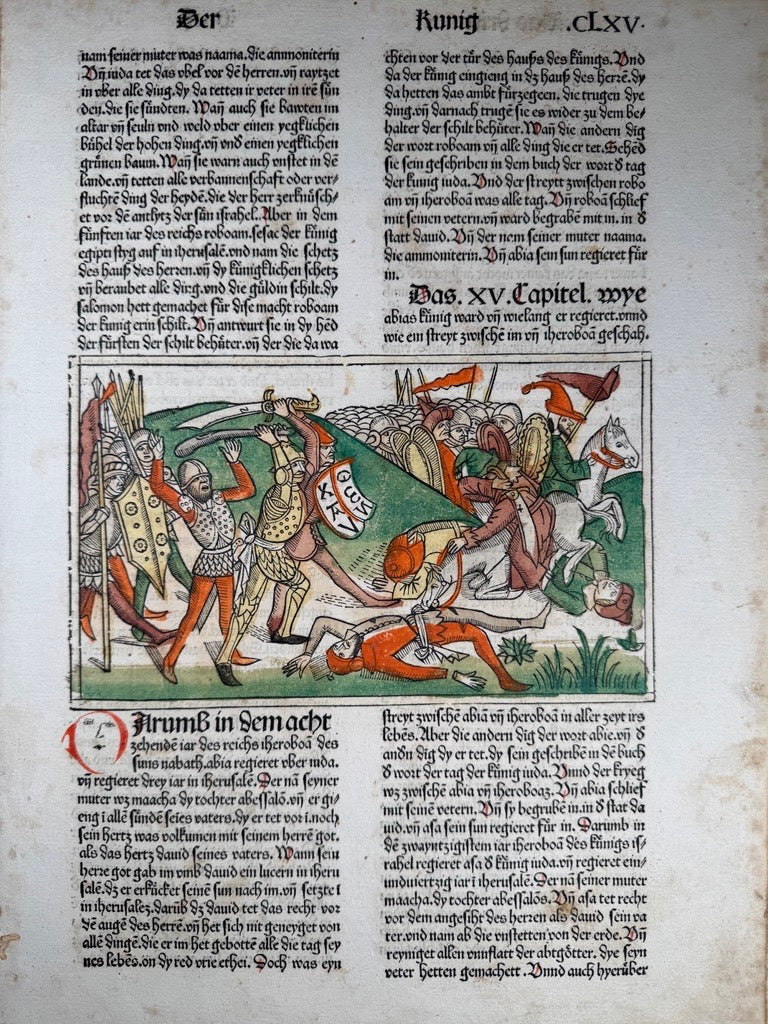 Der Kunig .CLXV.
nam seiner muter was naama. die ammoniterin
Vñ iuda tet das vbel vor dē herren. vñ raytzet
in vber alle ding. dy da tetten ir veter in irē sün
den. die sie sündten. Wañ auch sie bawten im
altar vñ seuln vnd weld vber einen yegklichen
bühel der hohen ding. vñ vnd einen yegklichen
grünen baum. Wañ sie warn auch vnstet in dē
lande. vñ tetten alle verbannenschaft oder ver⸗
fluchtēn ding der heydē. die der herr zerknüsch⸗
et vor dē antlytz der sün israhel. Aber in dem
fünften iar des reichs roboam. sesac der künig
egipti styg auf in iherusalē. vnd nam die schetz
des hauß des herren. vñ dy küniglichen schetz
vñ beraubet alle dirg. vnd die güldin schilt. dy
salomon hett gemachet für dise macht roboam
der kunig erin schilt. Vñ antwurt sie in dy hēd
der fürsten der schilt behüter. vñ der die da wa
chten vor der tür des hauß des künigs. Vnd
da der künig eingieng in dz hauß des herrē. dy
da hetten das ambt fürzegeen. die trugen dye
ding. vñ darnach trugē sie es wider zu dem be⸗
halter der schilt behüter. Wañ die andern dig
der wort roboam vñ alle ding die er tet. Sehēd
sie sein geschriben in dem buch der wort đ tag
der kunig iuda. Vnd der streytt zwischen robo
am vñ iheroboā was alle tag. Vñ roboā schlief
mit seinen vetern. vñ ward begrabē mit in. in đ
statt dauid. Vñ der nem seiner muter naama.
die ammoniterin. Vñ abia sein sun regieret für
in.
Das. XV. Capitel. wye
abias künig ward vñ wielang er regieret. vnnd
wie ein streyt zwischē im vñ iheroboā geschah.
DArumb in dem acht
zehendē iar des reichs iheroboā des
suns nabath. abia regieret vber iuda.
vñ regieret drey iar in iherusalē. Der nā seyner
muter wz maacha dy tochter abessalō. vñ er gi⸗
eng i allē sündē seies vaters. dy er tet vor i. noch
sein hertz was volkumen mit seinem herrē got.
als das hertz dauid seines vaters. Wann sein
herre got gab im vmb dauid ein lucern in iheru
salē. dz er erkücket seinē sun nach im. vñ setzte i
in iherusalez. darūb dz dauid tet das recht vor
dē augē des herrē. vñ het sich nit geneyget von
allē dingē. die er im het gebottē alle die tag sey
nes lebēs. on dy red vrie ethei. Doch was eyn
streyt zwischē abiā vñ iheroboā in aller zeyt irs
lebēs. Aber die andern dig der wort abie. vñ đ
andn dig dy er tet. dy sein geschribē in dē buch
đ wort der tag der künig iuda. Vnnd der kryeg
wz zwischē abia vñ iheroboaz. Vñ abia schlief
mit seinē vetern. Vñ sy begrubē in. in đ stat da
uid. vñ asa sein sun regieret für in. Darumb in
dē zwayntzigistem iar iheroboā des künigs is⸗
rahel regieret asa đ künig iuda. vñ regieret ein⸗
unduiertzig iar i iherusalē. Der nā seiner muter
maacha. dy tochter abessalōs. Vñ asa tet recht
vor dem angesiht des herren als dauid sein va
ter. vnd nam ab die vnstetten von der erde. Vñ
reyniget allen vnnflatt der abtgötter. dye seyn
veter hetten gemachett. Vnnd auch hyerüber